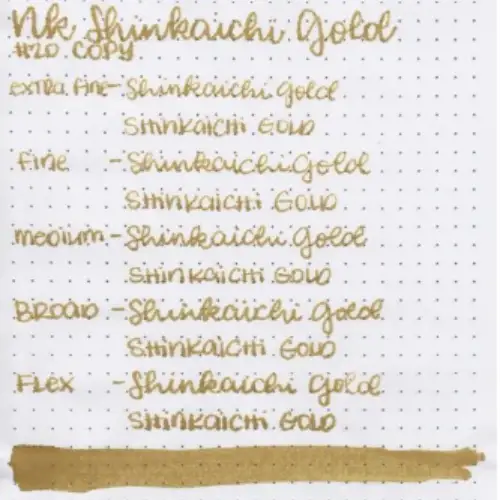 NK Shinkaichi Gold
#20 COPY
extra fine - Shinkaichi Gold
Shinkaichi Gold
fine - Shinkaichi Gold
Shinkaichi Gold
medium - Shinkaichi Gold
Shinkaichi Gold
Broad - Shinkaichi Gold
Shinkaichi Gold
Flex - Shinkaichi Gold
Shinkaichi Gold